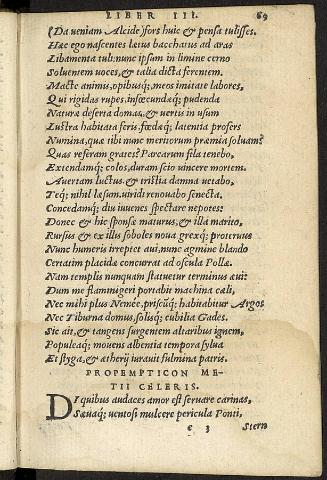 LIBER III. 69
(Da veniam Alcide) fors huic & pensa tulisses.
Hæc ego nascentes lætus bacchatus ad aras
Libamenta tuli. nunc ipsum in limine cerno
Soluentem uoces, & talia dicta ferentem.
Macte animis, opibusq; meos imitate labores,
Qui rigidas rupes, infœcundæq; pudenda
Naturæ deserta domas, & uertis in usum
Lustra habitata feris, fœdaq; latentia profers
Numina, quæ tibi nunc meritorum præmia soluam?
Quas referam grates? Parcarum fila tenebo,
Extendamq; colos, duram scio uincere mortem.
Auertam luctus, & tristia damna uetabo,
Teq; nihil læsum, uiridi renouabo senecta,
Concedamq; diu iuuenes spectare nepotes:
Donec & hic sponsæ maturus, & illa marito,
Rursus & ex illis soboles noua grexq; proteruus
Nunc humeris irreptet aui, nunc agmine blando
Certatim placidæ concurrat ad oscula Pollæ.
Nam templis nunquam statuetur terminus æui:
Dum me flammigeri portabit machina cæli,
Nec mihi plus Nemee, priscuq; habitabitur Argos
Nec Tiburna domus, solisq; cubilia Gades.
Sic ait, & tangens surgentem altaribus ignem,
Populeaq; mouens albentia tempora sylua
Et styga, & ætherij iurauit fulmina patris.
PROPEMPTICON ME-
TII CELERIS.
DI quibus audaces amor est seruare carinas,
Sæuaq; uentosi mulcere pericula Ponti,
e 3 Stern